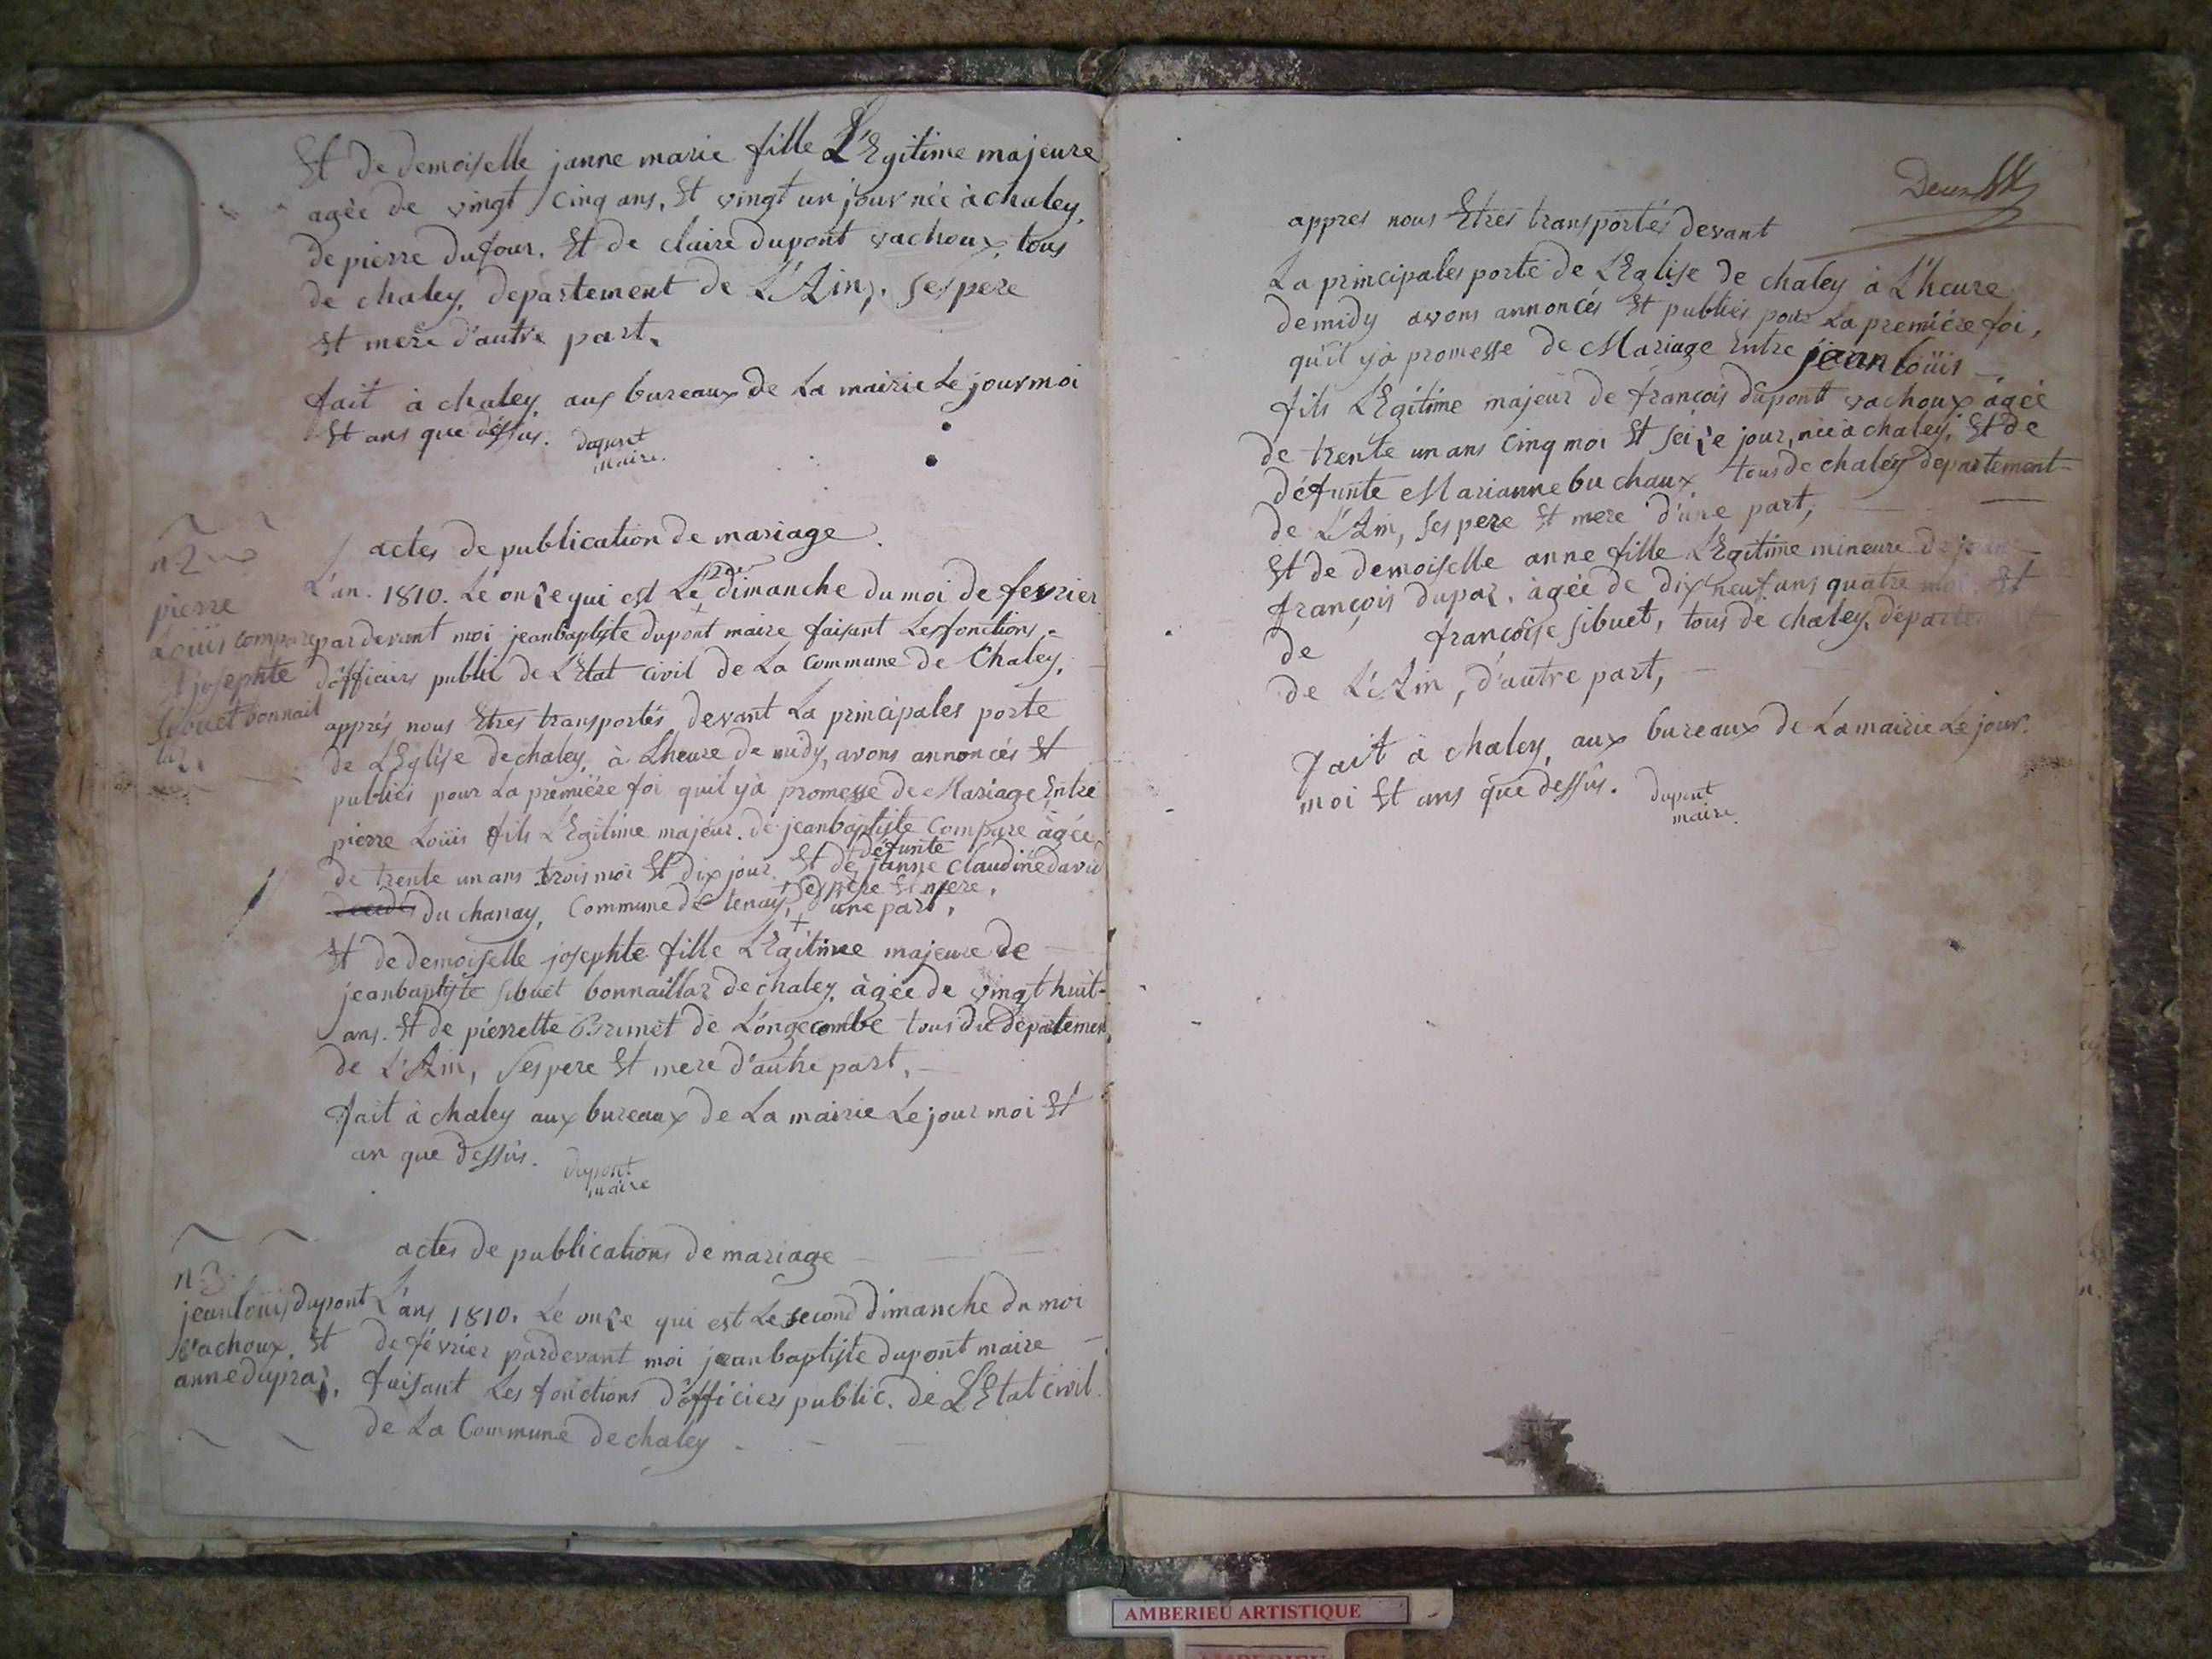 Et de demoiselle janne marie fille L'Egitime majeure
agée de vingt cinq ans, Et vingt un jour née à chaley,
de pierre dufour. Et de claire dupont vachoux, tous
de chaley, departement de L'Ain, ses pere
Et mere d'autre part.
fait à chaley aux bureaux de La mairie Le jour moi
Et ans que déssus. dupont
maire.
actes de publication de mariage
n 2
pierre
Loüis compare
Et josephte
sibuet bonnail
laz.
L'an. 1810. Le onze qui est Le 2me dimanche du moi de fevrier
pardevant moi jeanbaptiste dupont maire faisant Les fonctions
d'officiers public de L'Etat civil de La Commune de Chaley,
apprés nous Etres transportés devant La principales porte
de L'Eglise de chaley, à Lheure de midy, avons annoncés Et
publiés pour La premiére foi quil y à promesse de Mariage Entre
pierre Loüis fils L'Egitime majeur. de jeanbaptiste Compare àgée
de trente un ans trois moi Et dix jour. Et de défunte janne Claudine david
du chanay, Commune de tenay, ses pere Et mere, d'une part,
Et de demoiselle josephte fille L'Egitime majeure de
jeanbaptiste sibuet bonnaillaz de chaley, àgée de vingt huit
ans. Et de pierrette Brunet de Longecombe tous du departemen
de L'Ain, ses pere Et mere d'autre part,
fait à chaley aux bureaux de La mairie Le jour moi Et
an que dessus. dupont
maire
actes de publications de mariage
n 3
jeanloüis dupont
vachoux. Et
anne dupraz.
L'ans 1810. Le onze qui est Le second dimanche du moi
de février pardevant moi jeanbaptiste dupont maire
faisant Les fonctions d'officiers public. de L'Etat civil.
de La Commune de chaley
appres nous Etres transportés devant
La principales porte de L'Eglise de chaley à L'heure
de midy avons annoncés Et publiés pour La premiére foi,
qu'il y à promesse de Mariage Entre jean loüis
fils L'Egitime majeur de françois dupont vachoux àgée
de trente un ans Cinq moi Et seize jour, née à chaley, Et de
défunte Marianne buchaux tous de chaley departement
de L'Ain, ses pere Et mere d'une part,
Et de demoiselle anne fille L'Egitime mineure de jean
françois dupaz, àgée de dix neuf ans quatre moi Et
de françoise sibuet, tous de chaley, départem
de L'Ain, d'autre part,
fait à chaley, aux bureaux de La mairie Le jour.
moi Et ans que dessus. dupont
maire.
AMBERIEU ARTISTIQUE